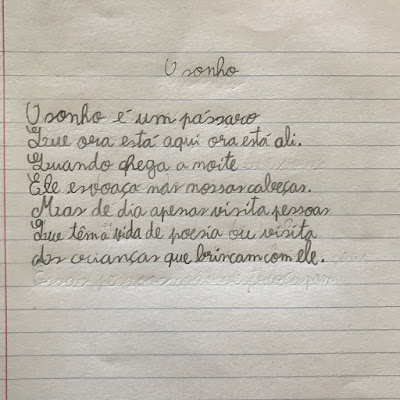 O sonho
O sonho é um pássaro
Que ora está aqui ora está ali.
Quando chega a noite
Ele esvoaça nas nossas cabeças.
Mas de dia apenas visita pessoas
Que têm a vida de poesia ou visita
As crianças que brincam com ele.